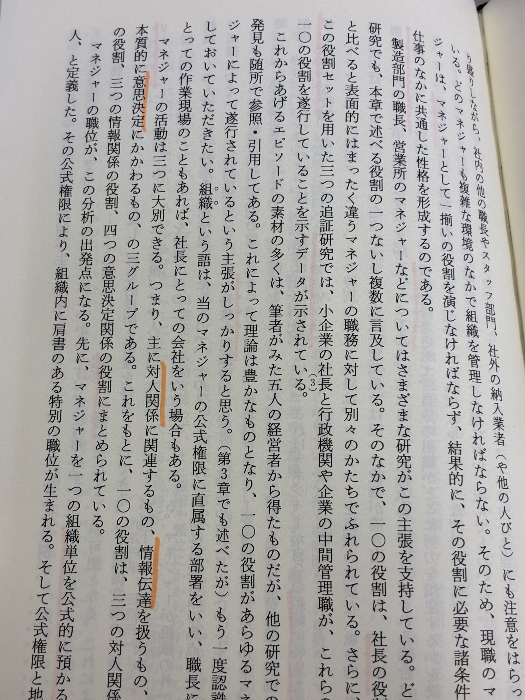 り繰りしながら、社内の他の職長やスタッフ部門、社外の納入業者(や他の人びと)にも注意をはら
いる。どのマネジャーも複雑な環境のなかで組織を管理しなければならない。そのため、現職のマ
ジャーは、マネジャーとして一揃いの役割を演じなければならず、結果的に、その役割に必要な諸条件
仕事のなかに共通した性格を形成するのである。
製造部門の職長、営業所のマネジャーなどについてはさまざまな研究がこの主張を支持している。ど
研究でも、本章で述べる役割の一つないし複数に言及している。そのなかで、一〇の役割は、社長の役
と比べると表面的にはまったく違うマネジャーの職務に対して別々のかたちでふれられている。さらに、
この役割セットを用いた三つの追証研究では、小企業の社長と行政機関や企業の中間管理職が、これら
一〇の役割を遂行していることを示すデータが示されている。(3)
これからあげるエピソードの素材の多くは、筆者がみた五人の経営者から得たものだが、他の研究での
発見も随所で参照・引用してある。これによって理論は豊かなものとなり、一〇の役割があらゆるマネ
ジャーによって遂行されているという主張がしっかりすると思う。(第3章でも述べたが)もう一度認識
しておいていただきたい。組織という語は、当のマネジャーの公式権限に直属する部署をいい、職長に
とっての作業現場のこともあれば、社長にとっての会社をいう場合もある。
マネジャーの活動は三つに大別できる。つまり、主に対人関係に関連するもの、情報伝達を扱うもの、
本質的に意思決定にかかわるもの、の三グループである。これをもとに、一〇の役割は、三つの対人関係
の役割、三つの情報関係の役割、四つの意思決定関係の役割にまとめられている。
マネジャーの職位が、この分析の出発点になる。先に、マネジャーを一つの組織単位を公式的に預かる
人、と定義した。その公式権限により、組織内に肩書のある特別の職位が生まれる。そして公式権限と地